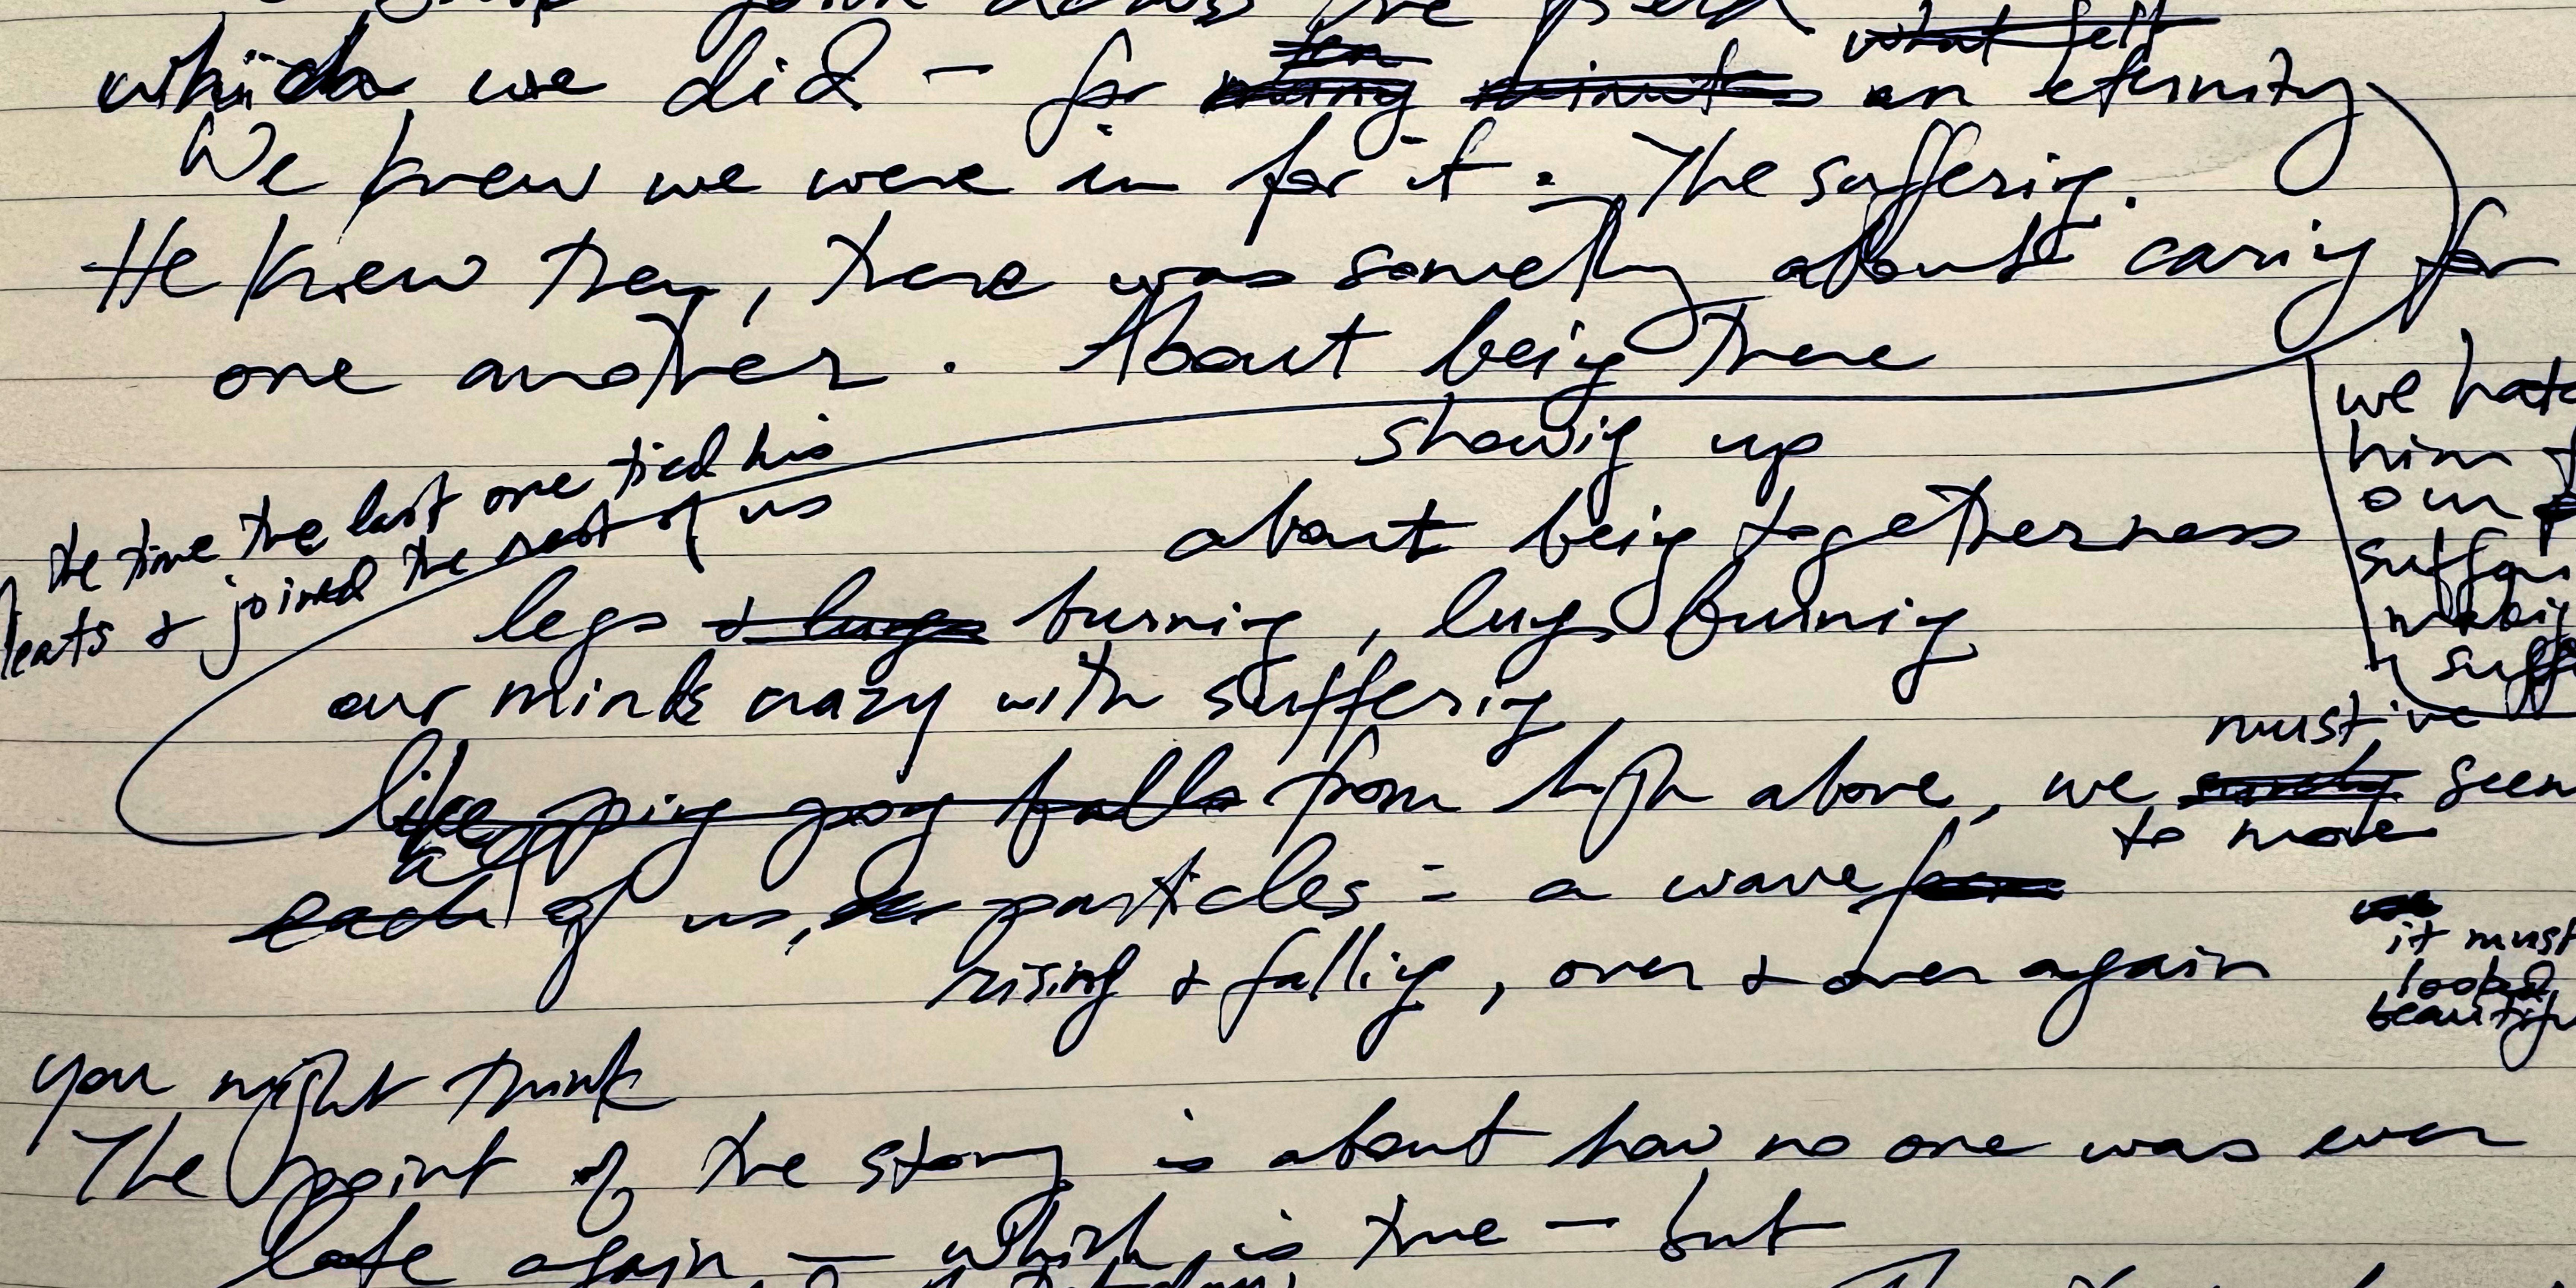 across the field
what felt
ten
which we did - for many minutes an eternity
We knew we were in for it. The suffering.
He knew then, there was something about caring for
one another. About being there
showing up
about being togetherness
we hate
him
our
the time the last one tied his
cleats & joined the rest of us
legs & lungs burning, lungs burning
our minds crazy with suffering
must've
like ping pong balls from high above, we seen
to move
all
each of us, particles - a wave
it must
looked
beautiful
rising & falling, over & over again
you might think
The point of the story is about how no one was ever
late again - which is true - but